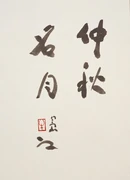 仲秋
名月